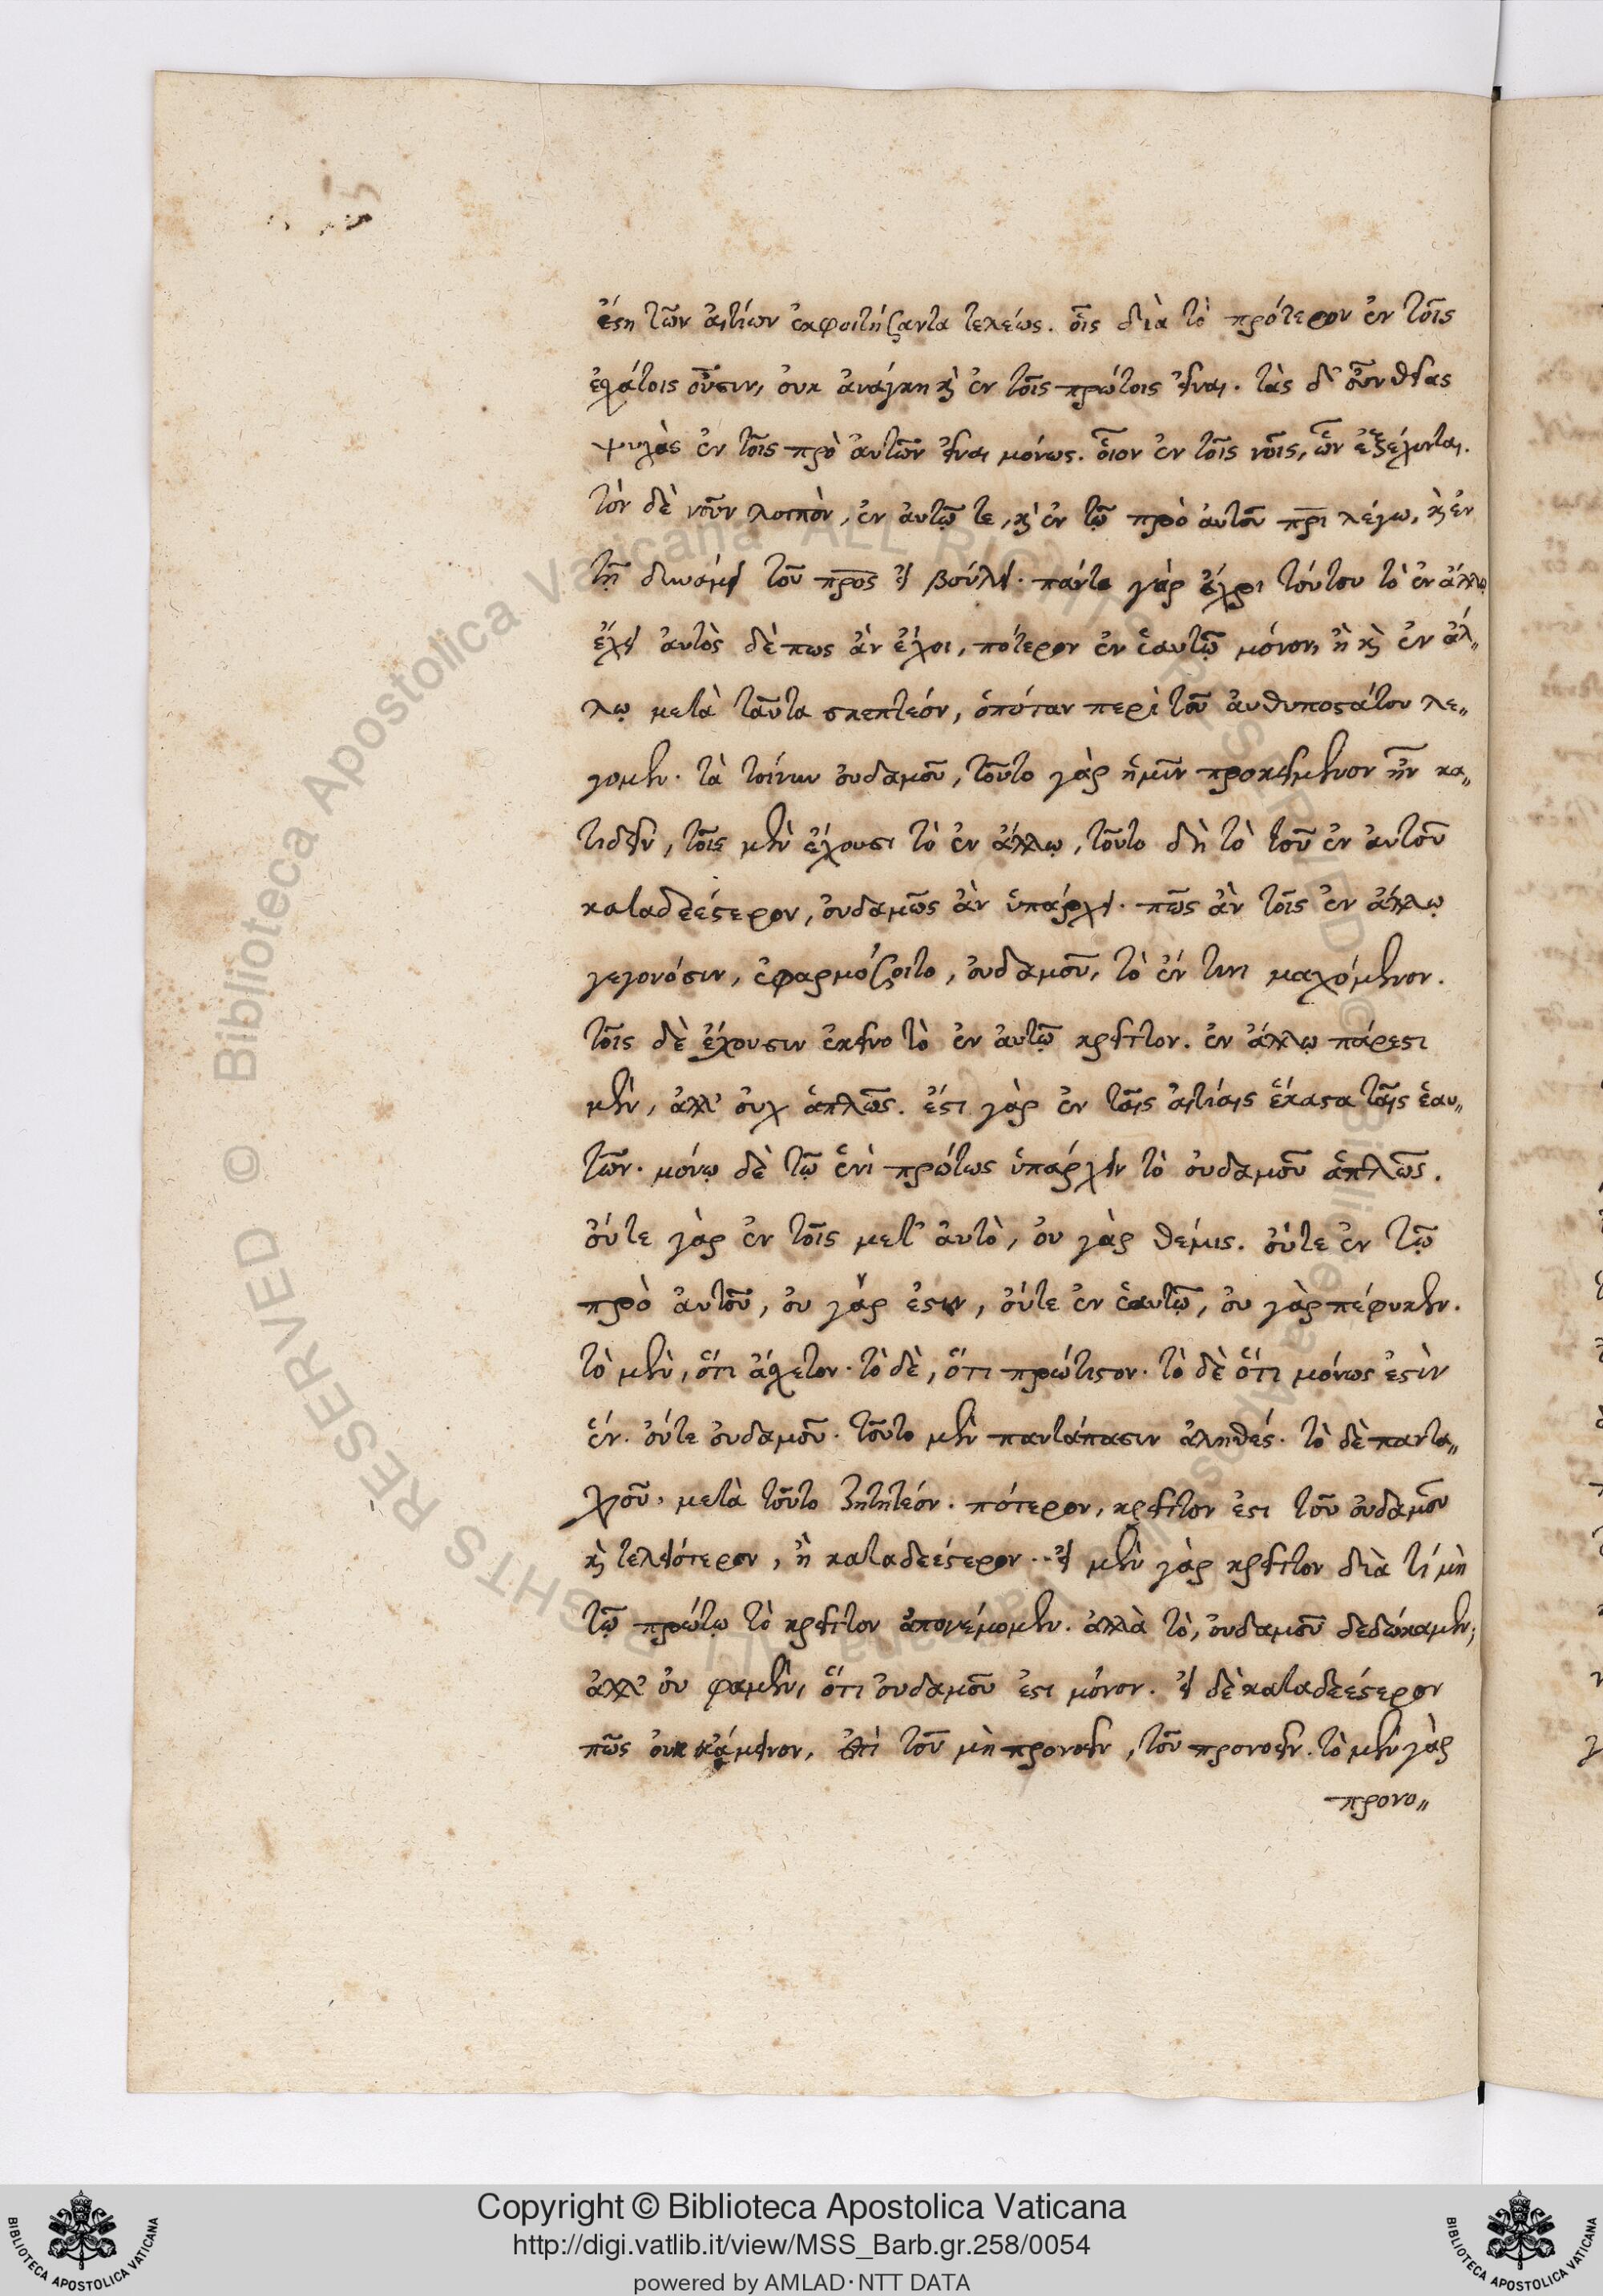 ἔστη τῶν αἰτίων ἐκφοιτήσαντα τελέως. οἷς διὰ τὸ πρότερον ἐν τοῖς
ἐσχάτοις οὖσιν, οὐκ ἀνάγκη καὶ ἐν τοῖς πρώτοις εἶναι. τὰς δ' οὖν θείας
ψυχὰς ἐν τοῖς πρὸ αὐτῶν εἶναι μόνως. οἷον ἐν τοῖς νοῖς, ὧν ἐξέχονται.
τὸν δὲ νοῦν λοιπὸν, ἐν αὐτῷ τε, καὶ ἐν τῷ πρὸ αὐτοῦ πρι λέγω, καὶ ἐν
τῇ δυνάμει τοῦ προς εἰ βούλει. πάντα γὰρ ἄχρι τούτου τὸ ἐν ἄλλῳ
ἔχει αὐτὸς δὲ πως ἂν ἔχοι, πότερον ἐν ἑαυτῷ μόνον, ἢ καὶ ἐν ἄλ„
λῳ μετὰ ταῦτα σκεπτέον, ὁπόταν περὶ τοῦ αὐθυποστάτου λε„
γομεν. τὰ τοίνυν οὐδαμοῦ, τοῦτο γὰρ ἡμῖν προκείμενον ἦν κα„
τιδεῖν, τοῖς μὲν ἔχουσι τὸ ἐν ἄλλῳ, τοῦτο δὴ τὸ τοῦ ἐν αὐτοῦ
καταδεέστερον, οὐδαμῶς ἂν ὑπάρχει. πῶς ἂν τοῖς ἐν ἄλλῳ
γεγονόσιν, ἐφαρμόζοιτο, οὐδαμοῦ, τὸ ἔν τινι μαχόμενον.
τοῖς δὲ ἔχουσιν ἐκεῖνο τὸ ἐν αὐτῷ κρεῖττον. ἐν ἄλλῳ πάρεστι
μὲν, ἀλλ' οὐχ ἁπλῶς. ἔστι γὰρ ἐν ταῖς αἰτίαις ἕκαστα ταῖς ἑαυ„
τῶν. μόνῳ δὲ τῷ ἑνὶ πρώτως ὑπάρχειν τὸ οὐδαμοῦ ἁπλῶς.
οὔτε γὰρ ἐν τοῖς μετ' αὐτὸ, οὐ γὰρ θέμις. οὔτε ἐν τῷ
πρὸ αὐτοῦ, οὐ γάρ ἐστιν, οὔτε ἐν ἑαυτῷ, οὐ γὰρ πέφυκεν.
τὸ μὲν, ὅτι ἄσχετον. τὸ δὲ, ὅτι πρώτιστον. τὸ δὲ ὅτι μόνως ἐστὶν
ἕν. οὔτε οὐδαμοῦ. τοῦτο μὲν παντάπασιν ἀληθές. τὸ δὲ παντα„
χοῦ, μετὰ τοῦτο ζητητέον. πότερον, κρεῖττον ἐστι τοῦ οὐδαμοῦ
καὶ τελειότερον, ἢ καταδεέστερον. εἰ μὲν γὰρ κρεῖττον διὰ τί μὴ
τῷ πρώτῳ τὸ κρεῖττον ἀπονέμομεν. ἀλλὰ τὸ, οὐδαμοῦ δεδώκαμεν,
ἀλλ' οὐ φαμὲν, ὅτι οὐδαμοῦ ἐστι μόνον. εἰ δὲ καταδεέστερον
πῶς οὐκ ἄμεινον, ἐπὶ τοῦ μὴ προνοεῖν, τοῦ προνοεῖν. τὸ μὲν γὰρ
προνο„
Copyright © Biblioteca Apostolica Vaticana
http://digi.vatlib.it/view/MSS_Barb.gr.258/0054
powered by AMLAD·NTT DATA